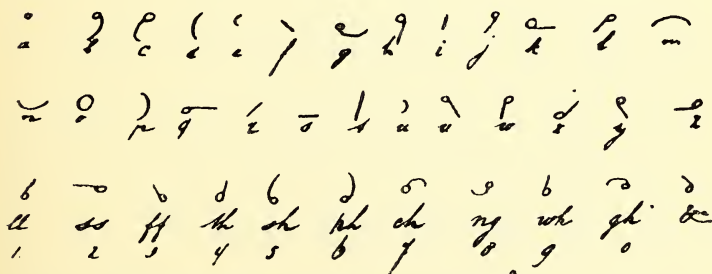 a b c d e f g h i j k l m
n o p q r s t u v w x y z
ll ss ff th sh ph ch ng wh gh &c
1 2 3 4 5 6 7 8 9 0